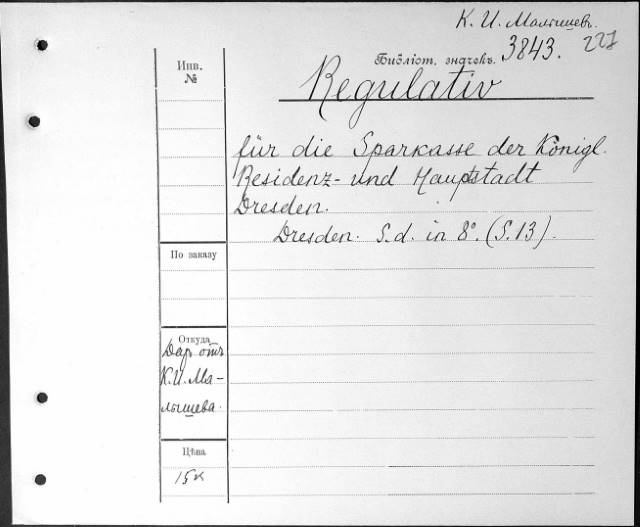 К. И. Малышевъ.
Библіот. значекъ. 3843. 227
Инв.
№
Regulativ
für die Sparkasse der Königl.
Residenz- und Hauptstadt
Dresden.
Dresden. S. d. in 8°. (S. 13).
По заказу
Откуда
Даръ отъ
К. И. Ма-
лышева.
Цѣна
15к